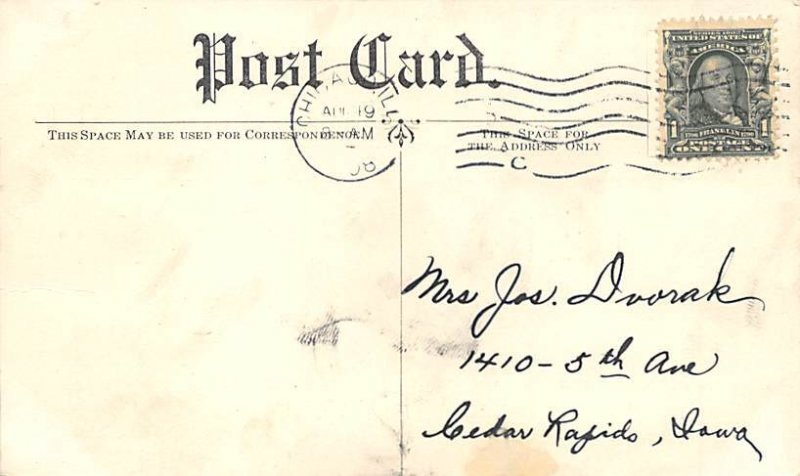 Post Card.
CHICAGO, ILL.
19
AM
08
THIS SPACE MAY BE USED FOR CORRESPONDENCE
THIS SPACE FOR
THE ADDRESS ONLY
C
SERIES 1902
UNITED STATES OF
AMERICA
FRANKLIN
1 1
POSTAGE
ONE CENT
Mrs Jos. Dvorak
1410 - 5th Ave
Cedar Rapids, Iowa